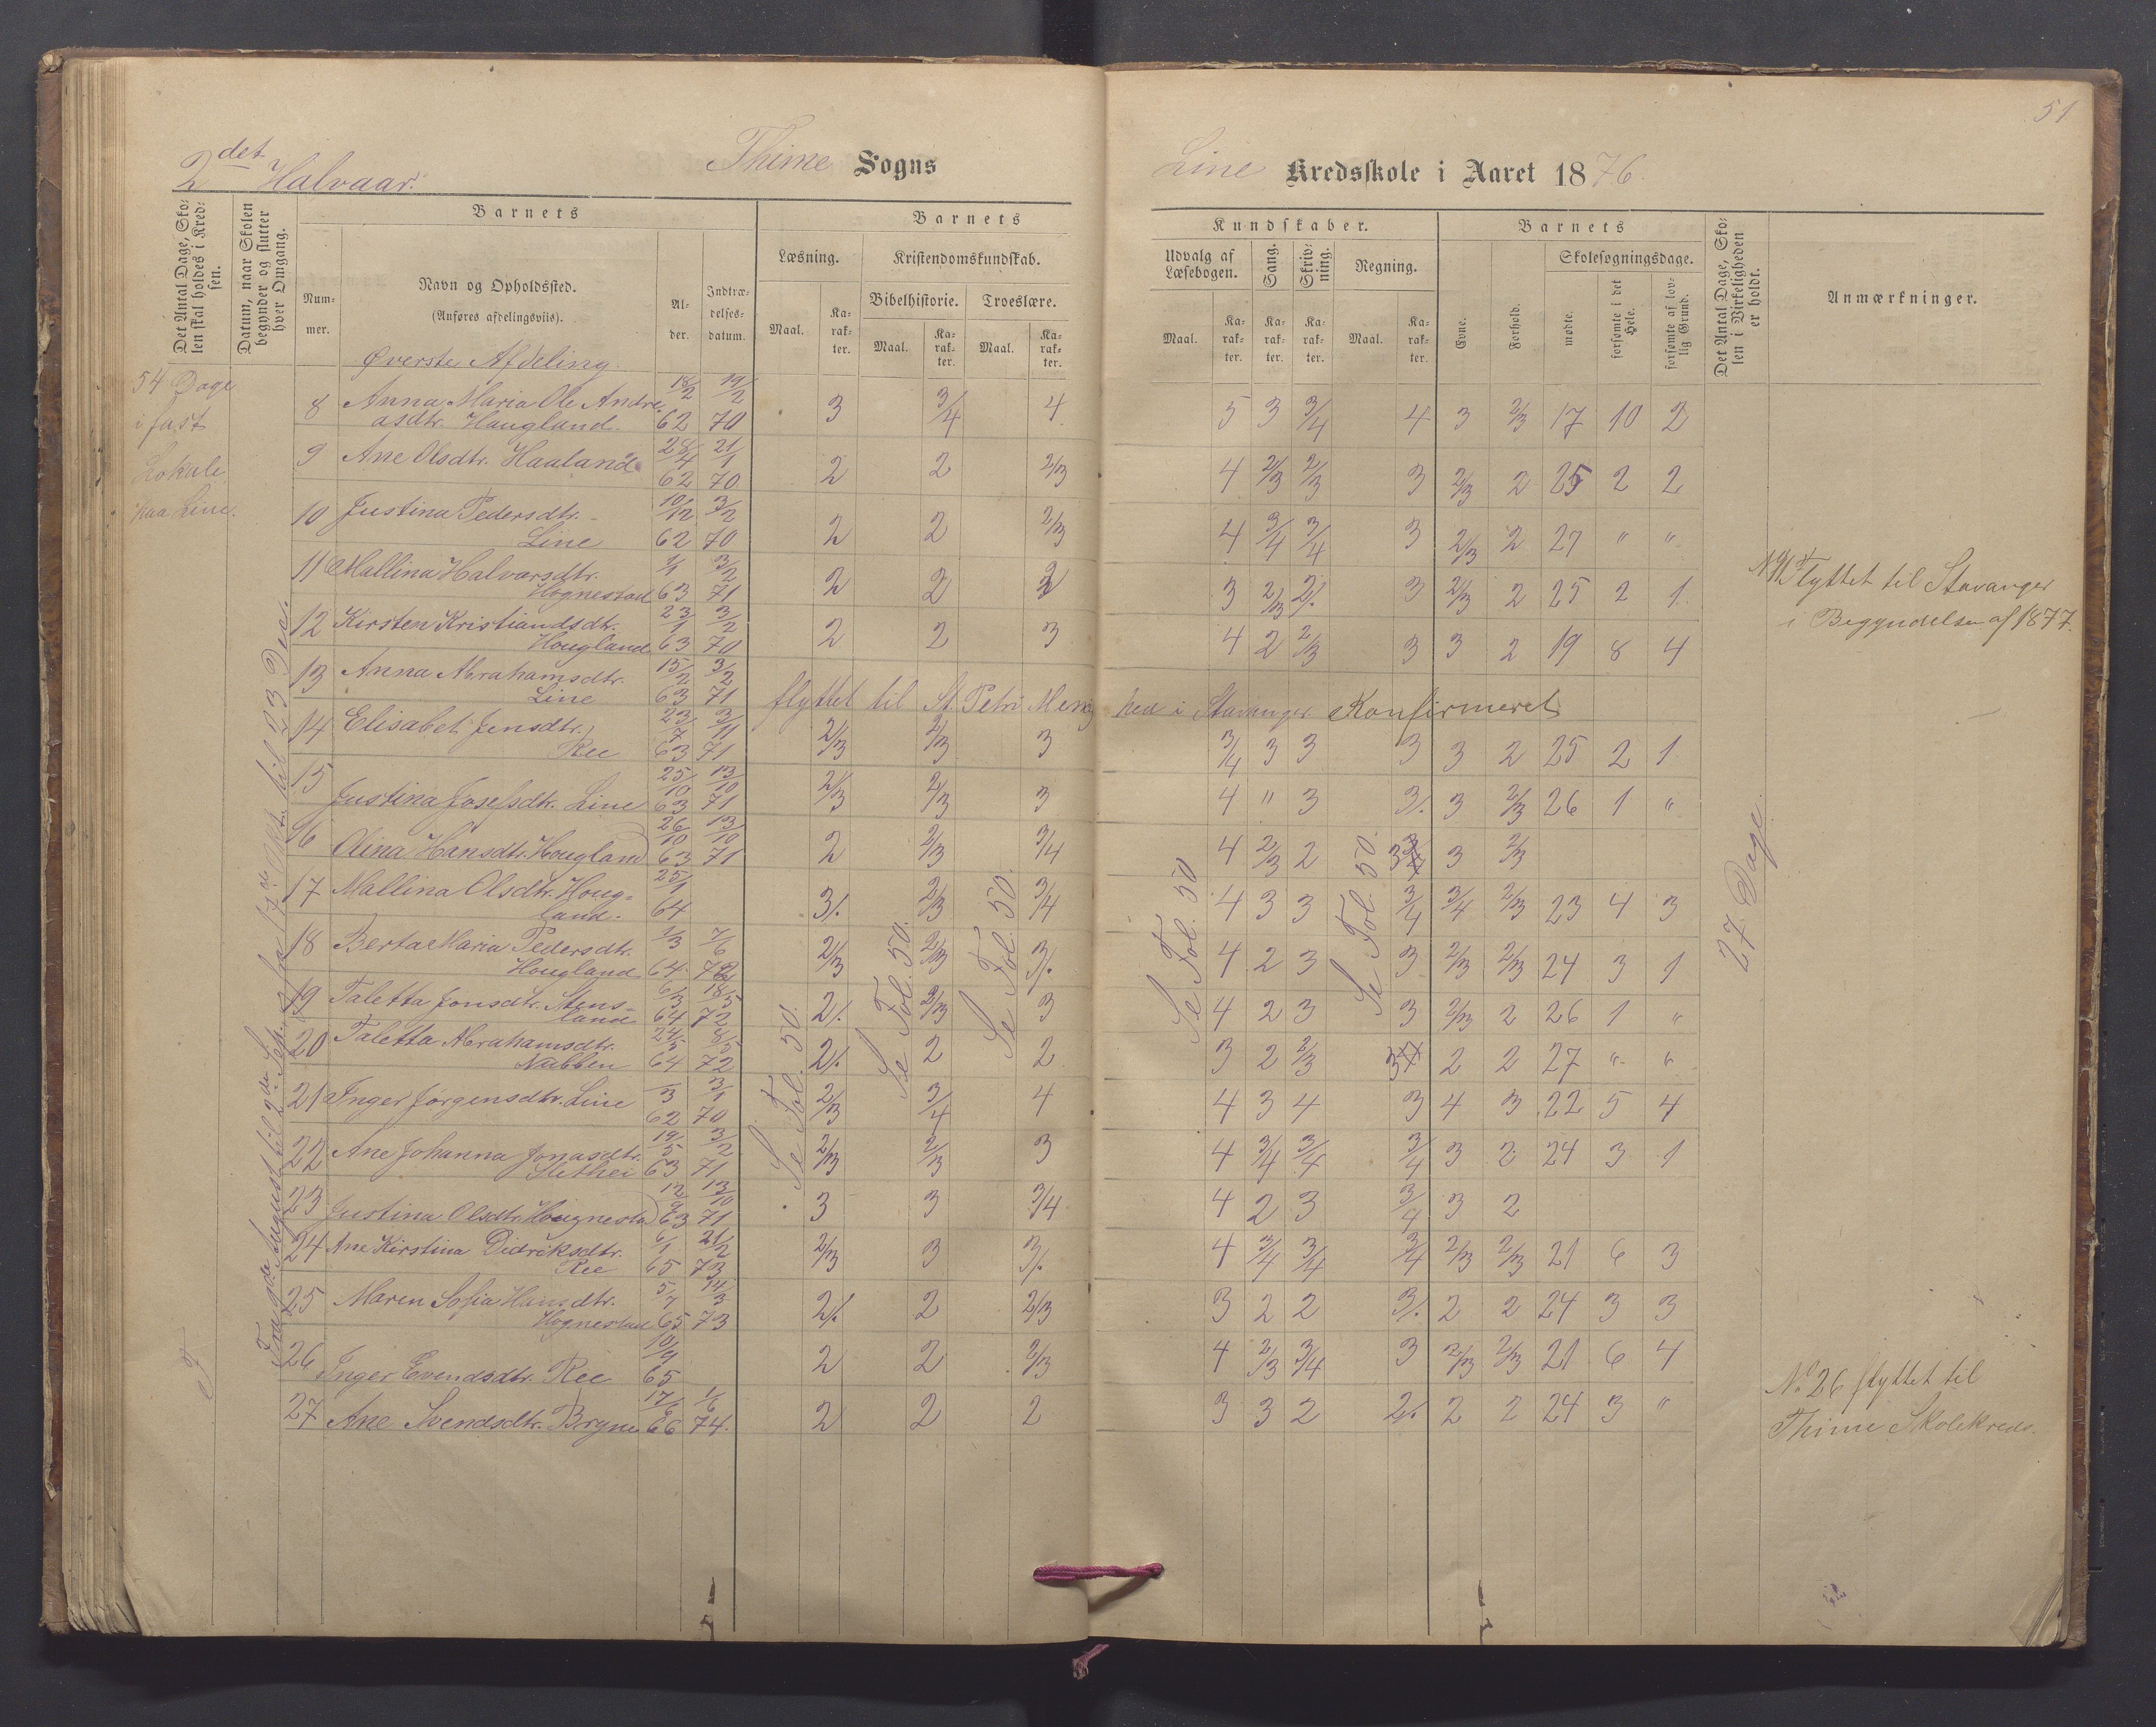 51
2det Halvaar.
Thime Sogns
Line Kredsskole i Aaret 1876.
Det Antal Dage, Skolen skal holdes i Kredsen.
Datum, naar Skolen begynder og slutter hver Omgang.
Barnets
Nummer.
Navn og Opholdssted.
(Anføres afdelingsviis).
Alder.
Indtrædelsesdatum.
Barnets
Læsning.
Kristendomskundskab.
Bibelhistorie.
Troeslære.
Maal.
Karakter.
Maal.
Karakter.
Maal.
Karakter.
Kundskaber.
Udvalg af Læsebogen.
Sang.
Skrivning.
Regning.
Maal.
Karakter.
Karakter.
Karakter.
Maal.
Karakter.
Barnets
Evne.
Forhold.
Skolesøgningsdage.
mødte.
forsømte i det Hele.
forsømte af lovlig Grund.
Det Antal Dage, Skolen i Virkeligheden er holdt.
Anmærkninger.
Øverste Afdeling.
54 Dage
i fast
Lokale
paa Line.
8 Anna Maria Ole Andreasdtr. Haugland. 18/2 62 19/2 70 3 3/4 4 5 3 3/4 4 3 2/3 17 10 2
9 Ane Olsdtr. Haaland 28/4 62 21/1 70 2 2 2/3 4 2/3 2/3 3 2/3 2 25 2 2
10 Justina Pedersdtr. Line 10/12 62 3/2 70 2 2 2/3 4 3/4 3/4 3 2/3 2 27 " "
11 Mallina Halvarsdtr. Hognestad 63 3/2 71 2 2 3 2/3 2/. 3 2/3 2 25 2 1
12 Kirsten Kristiandsdtr. Hougland 23/1 63 3/2 70 2 2 3 4 2 2/3 3 3 2 19 8 4
13 Anna Abrahamsdtr. Line 15/2 63 3/2 71 flyttet til St. Petri Menighed i Stavanger Konfirmeret
14 Elisabet Jensdtr. Ree 23/7 63 3/11 71 2/3 2/3 3 3/4 3 3 3 3 2 25 2 1
15 Justina Josefsdtr. Line 25/10 63 13/10 71 2/3 2/3 3 4 " 3 3/. 3 2/3 26 1 "
16 Olina Hansdtr. Hougland 26/10 63 13/10 71 2 2/3 3/4 4 2/3 2 3 3 2/3
17 Mallina Olsdtr. Hougland. 25/1 64 3/. 2/3 3/4 4 3 3 3/4 3/4 2/3 23 4 3
18 Berta Maria Pedersdtr. Hougland 1/3 64 7/6 72 2/3 2/3 3/. 4 2 3 3 2/3 2/3 24 3 1
19 Taletta Jonsdtr. Stensland 6/3 64 18/5 72 2/. 2/3 3 4 2 3 3 2/3 2 26 1 "
20 Taletta Abrahamsdtr. Nubben 24/5 64 8/5 72 2/. 2 2 3 2 2/3 3 2 2 27 " "
21 Inger Jørgensdtr. Line /3 62 3/1 70 2/3 3/4 4 4 3 4 3 4 3 22 5 4
22 Ane Johanna Jonasdtr. Slethei 19/5 63 3/2 71 2/3 2/3 3 4 3/4 3/4 3/4 3 2 24 3 1
23 Justina Olsdtr. Hougnestad 63 13/10 71 3 3 3/4 4 2 3 3/4 3 2
24 Ane Kirstina Didriksdtr. Ree 6/1 65 21/2 73 2/3 3 3/. 4 3/4 3/4 3/4 2/3 2/3 21 6 3
25 Maren Sofia Hansdtr. Hognestad 5/7 65 14/3 73 2/. 2 2/3 3 2 2 3/. 2 2 24 3 3
26 Inger Evendsdtr. Ree 10/9 65 2 2 2/3 4 2/3 3/4 3 2/3 2/3 21 6 4
27 Ane Svendsdtr. Bryne 17/6 66 1/6 74. 2 2 2 3 3 2 2/. 2 2 24 3 "
Se Fol. 50.
Se Fol. 50.
Se Fol. 50.
Se Fol. 50
Se Fol. 50.
27 Dage.
Flyttet til Stavanger
i Begyndelsen af 1877.
No 26 flyttet til
Thime Skolekreds.